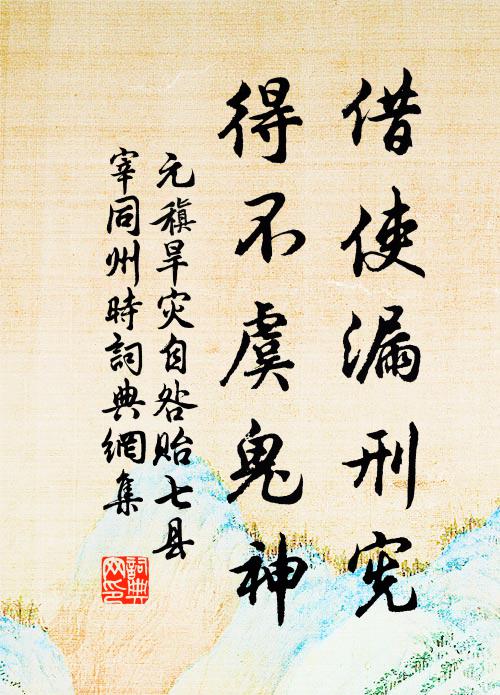 借使漏刑宪
得不虞鬼神
元稹旱灾自咎贻七县
宰同州時詞典網集
詞典网印